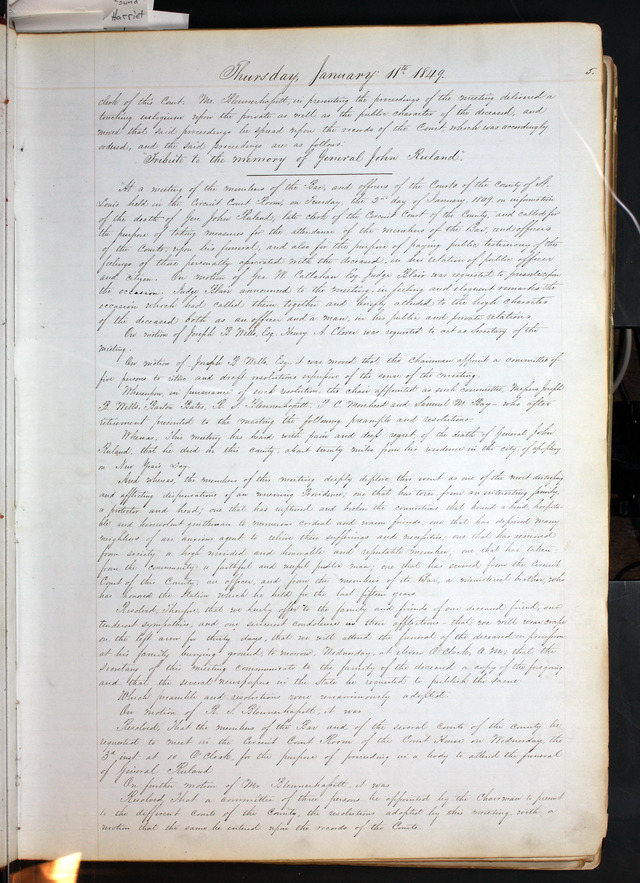 Found
Harriet
Thursday, January 11th 1849. 5.
clerk of this Court. Mr. Blennerhassett, in presenting the proceedings of the meeting delivered a
touching eulogium upon the private as well as the public character of the deceased, and
moved that said proceedings be spread upon the records of the Court, which was accordingly
ordered, and the said proceedings are as follows:
"Tribute to the memory of General John Ruland".
At a meeting of the members of the Bar, and officers of the Courts of the county of St.
Louis held in the Circuit Court Room, on Tuesday, the 2nd day of January 1849, on information
of the death of Gen. John Ruland, late clerk of the Circuit Court of the County, and called for
the purpose of taking measures for the attendance of the members of the Bar, and officers
of the Courts, upon his funeral, and also for the purpose of paying public testimony of the
feelings of those personally associated with the deceased, in his relation of public officer
and citizen. On motion of Geo. W. Callahan Esq Judge Blair was requested to preside upon
the occasion. Judge Blair announced to the meeting, in feeling and eloquent remarks the
occasion which had called them together and briefly alluded to the high character
of the deceased both as an officer and a man, in his public and private relations.
On motion of Joseph B. Wells, Esq. Henry A. Clover was requested to act as Secretary of the
meeting.
On motion of Joseph B. Wells, Esq. it was moved that the Chairman appoint a committee of
five persons to retire and draft resolutions expressive of the sense of the meeting.
Whereupon, in pursuance of such resolution, the chair appointed as such committee, Messrs Joseph
B. Wells, Barton Bates, R. S. Blennerhassett, P. C. Morehead and Samuel M. Bay - who after
retirement presented to the meeting the following preamble and resolutions:
Whereas, This meeting has heard with pain and deep regret of the death of General John
Ruland, that he died in this county, about twenty miles from his residence in the city, of apoplexy
on New Year's day.
And, whereas, the members of this meeting deeply deplore this event as one of the most distressing
and afflicting dispensations of an unerring Providence; one that has torn from an interesting family,
a protector and head; one that has ruptured and broken the connections that bound a kind, hospita-
ble and benevolent gentleman to numerous cordial and warm friends, one that has deprived many
neighbors of an anxious agent to relieve their sufferings and necessities, one that has removed
from society a high minded and honorable and reputable member, one that has taken
from the community, a faithful and useful public man; one that has severed from the Circuit
Court of this County, an officer, and from the members of its Bar, a ministerial brother, who
has honored the station which he held for the last fifteen years
Resolved, Therefore, that we hereby offer to the family and friends of our deceased friend, our
tenderest sympathies, and our sincerest condolence in their afflictions - that we will wear crape
on the left arm for thirty days, that we will attend the funeral of the deceased in procession
at his family burying ground, to morrow, Wednesday, at eleven O'Clock, A.M; that the
Secretary of this meeting communicate to the family of the deceased a copy of the foregoing
and that the several newspapers in the State be requested to publish the same.
Which preamble and resolutions were unanimously adopted.
On motion of R. S. Blennerhassett, it was
Resolved, That the members of the Bar and of the several courts of the county, be
requested to meet in the Circuit Court Room of the Court House on Wednesday, the
3d inst. at 10 O'Clock, for the purpose of proceeding in a body to attend the funeral
of General Ruland
On further motion of Mr. Blennerhassett, it was
Resolved, That a committee of three persons be appointed by the Chairman to present
to the different courts of the County, the resolutions adopted by this meeting, with a
motion that the same be entered upon the records of the Courts.